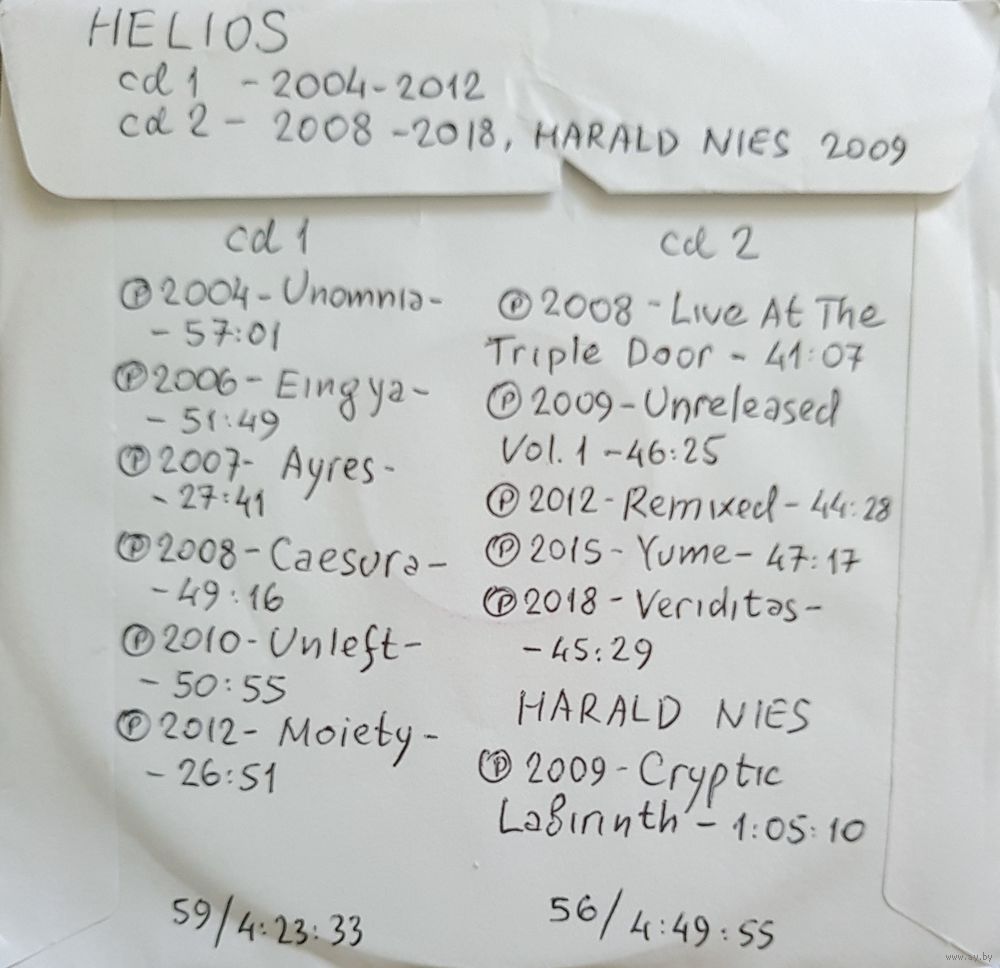 HELIOS
cd 1 - 2004-2012
cd 2 - 2008-2018, HARALD NIES 2009
cd 1
Ⓟ2004-Unomnia-
-57:01
Ⓟ2006-Eingya-
-51:49
Ⓟ2007- Ayres-
-27:41
Ⓟ2008-Caesura-
-49:16
Ⓟ2010-Unleft-
-50:55
Ⓟ2012- Moiety-
-26:51
59/4:23:33
cd 2
Ⓟ2008-Live At The
Triple Door - 41:07
Ⓟ2009-Unreleased
Vol. 1 -46:25
Ⓟ2012-Remixed-44:28
Ⓟ2015-Yume-47:17
Ⓟ2018-Veriditas-
-45:29
HARALD NIES
Ⓟ2009-Cryptic
Labirinth - 1:05:10
56/4:49:55
www.ay.by